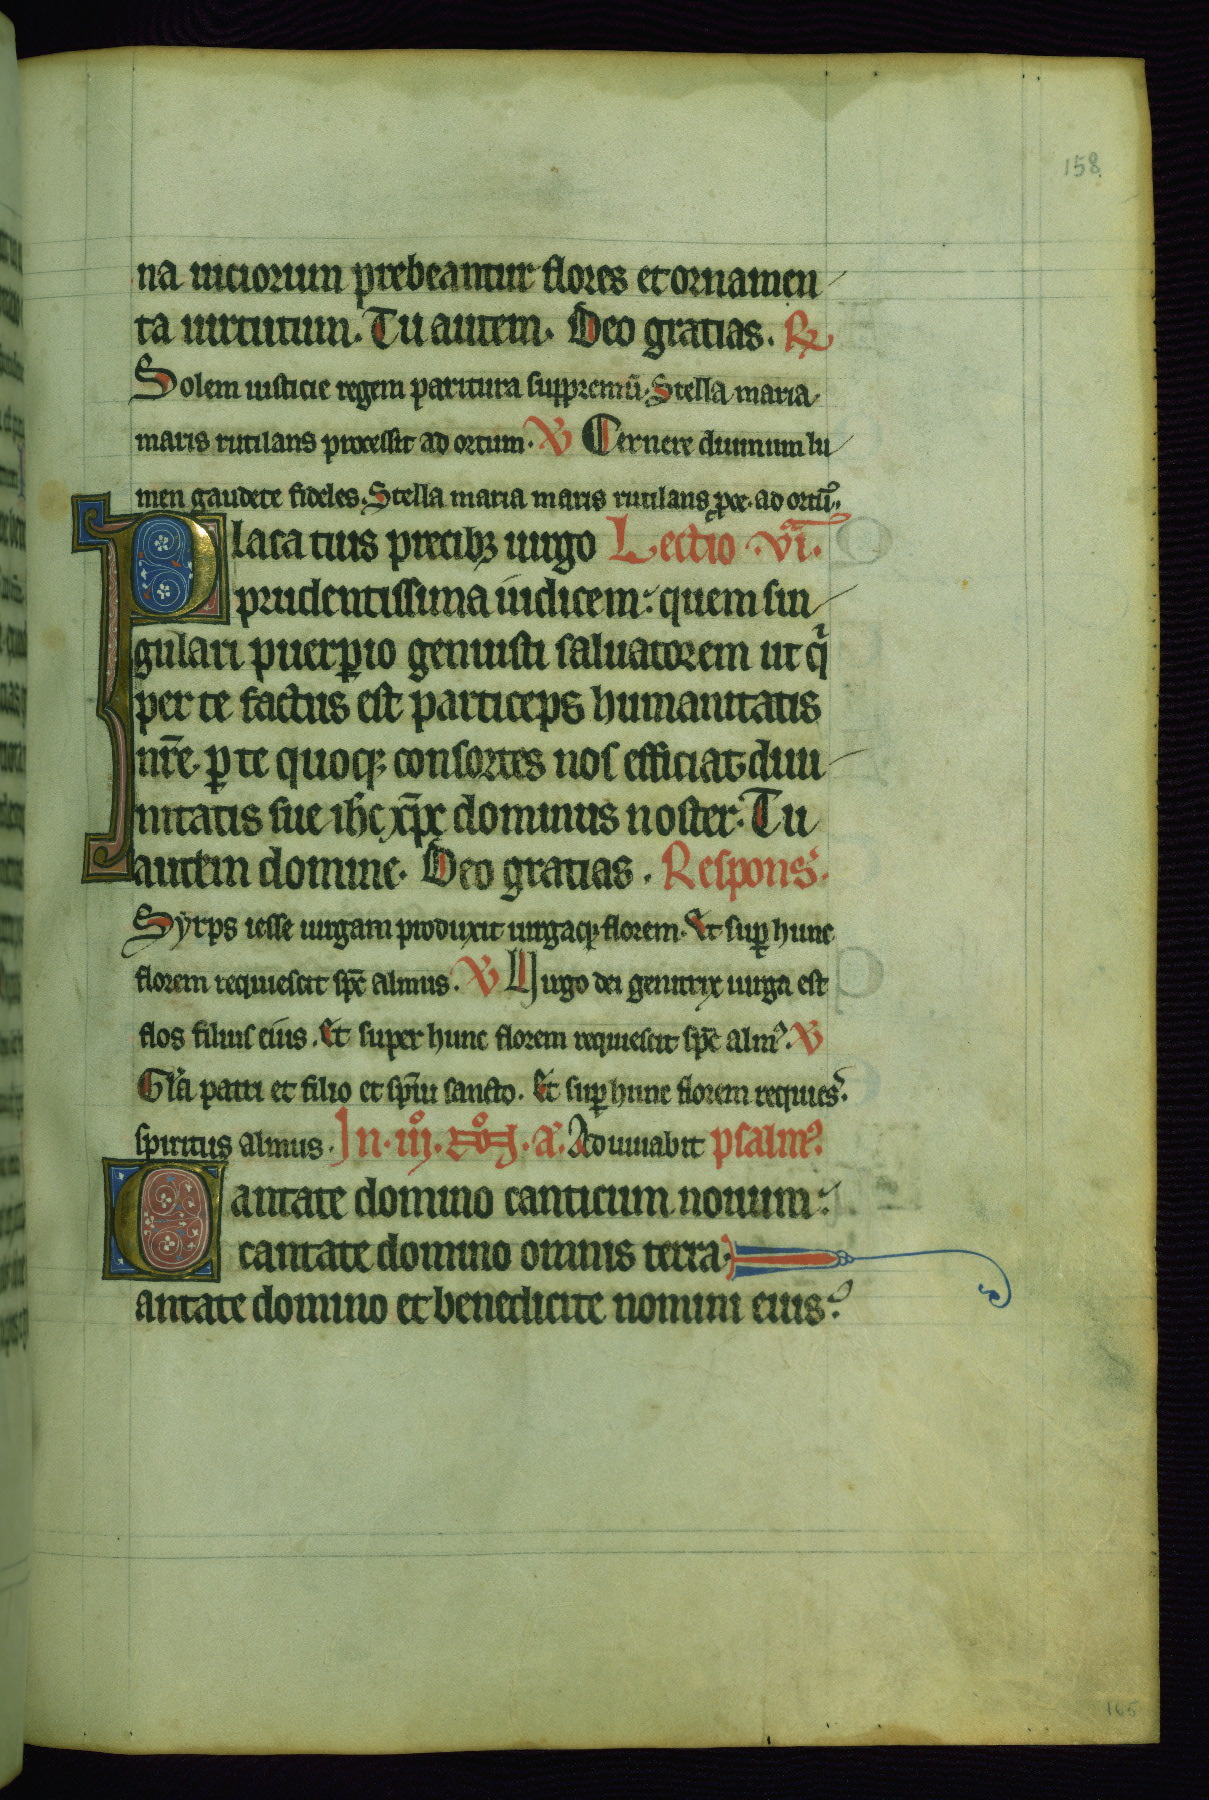 158
na uiciorum prebeantur flores et ornamen
ta uirtutum. Tu autem. Deo gratias. R
Solem iusticie regem paritura suppremū. Stella maria
maris rutilans processit ad ortum. V Cernere diuinum lu
men gaudete fideles. Stella maria maris rutilans ꝓce. ad ortū.
Placa tuis precibꝫ uirgo Lectio .vi.
prudentissima iudicem: quem sin
gulari puerꝑio genuisti saluatorem ut q̇
per te factus est particeps humanitatis
nr̄e. ꝑ te quoqꝫ consortes nos efficiat diui
nitatis sue ih̄c xp̄c dominus noster. Tu
autem domine. Deo gratias. Respons̉.
Syrps iesse uirgam produxit uirgaqꝫ florem. Et suꝑ hunc
florem requiescit sp̄c almus. V Uirgo dei genitrix uirga est
flos filius eius. Et super hunc florem requiescit sp̄c almꝰ. V
Gl̄a patri et filio et sp̄iu sancto. Et suꝑ hunc florem requies̉.
spiritus almus. In .iijͦ. noͨ. a᷒. Adiuuabit psalmꝰ.
Cantate domino canticum nouum:
cantate domino omnis terra.
antate domino et benedicite nomini eius.
165